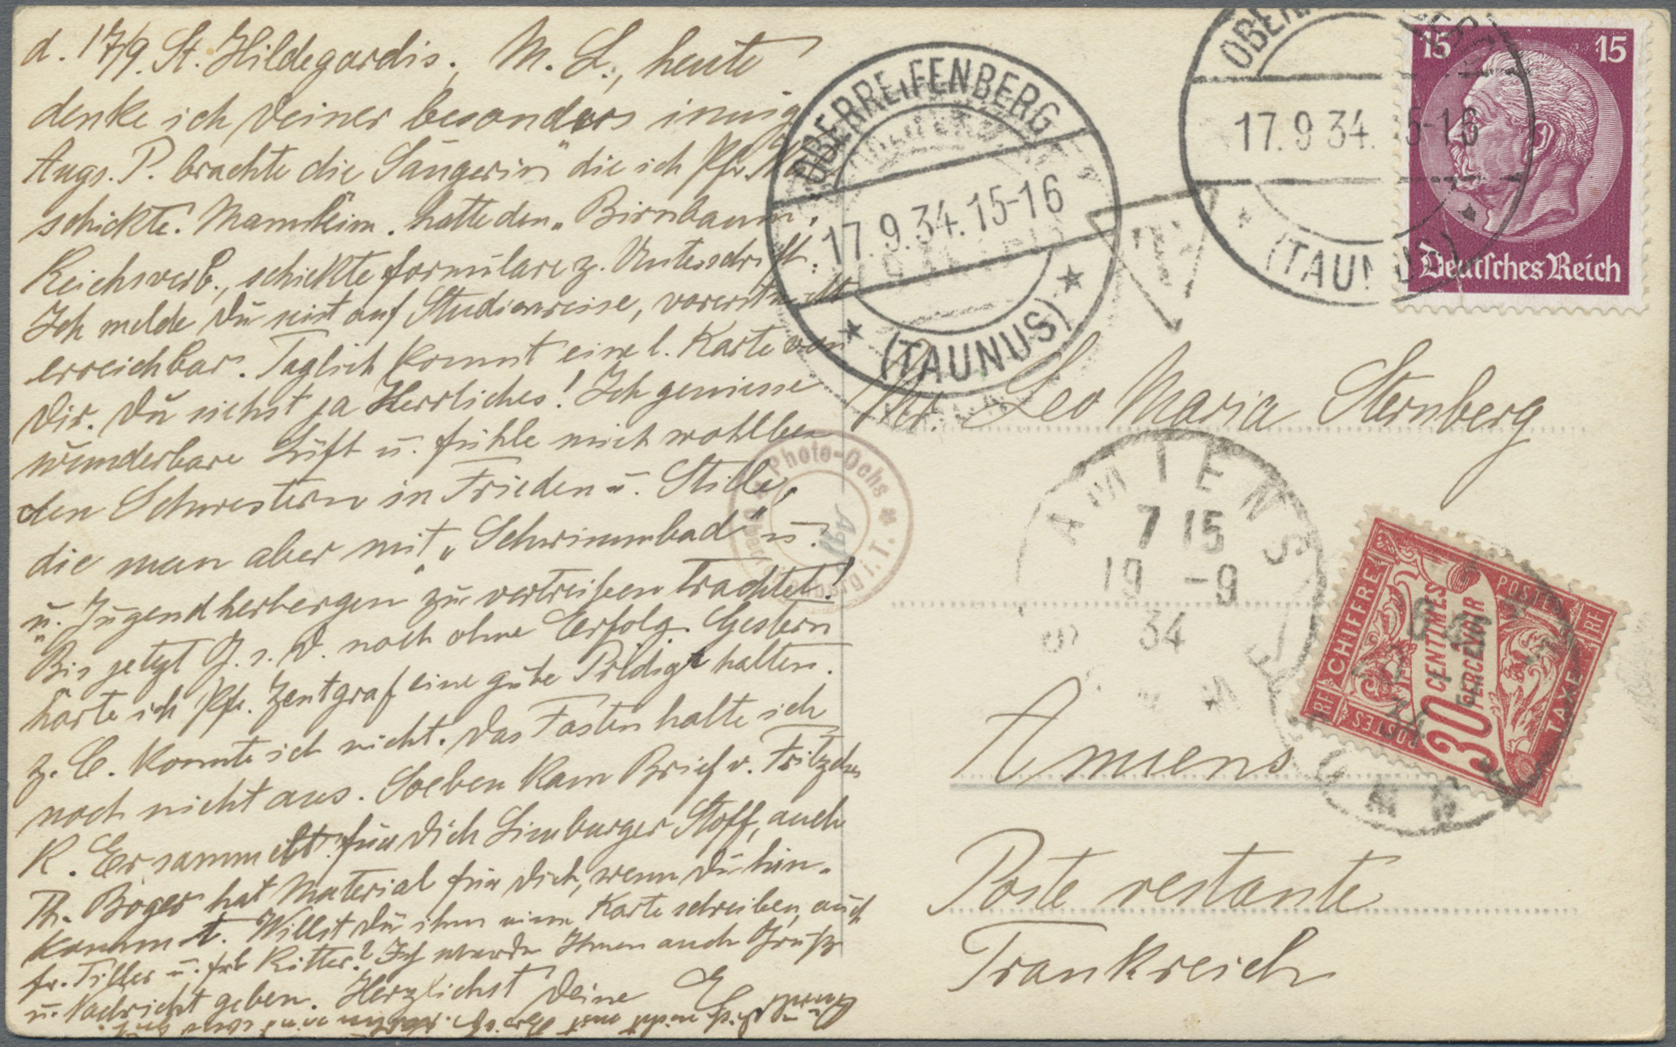 d. 17/9. St. Hildegardis. M. L., heute
denke ich Deiner besonders innig
Augs. P. brachte die „Sängerin" die ich Pfr.
schickte. Mannheim. hatte den „Birnbaum".
Reichsverb., schickte formulare z. Unterschrift.
Ich melde Du seist auf Studienreise, vorerst nicht
erreichbar. Täglich kommt eine l. Karte von
Dir. Du siehst ja Herrliches! Ich geniesse
wunderbare Luft u. fühle mich wohl bei
den Schwestern in Frieden u. Stille,
die man aber mit „Schwimmbad" u.
u. „Jugendherbergen zu vertreiben trachtet!
Bis jetzt G. s. D. noch ohne Erfolg. Gestern
hörte ich Pfr. Zentgraf eine gute Predigt halten.
z. C. konnte ich nicht. Das Fasten halte ich
noch nicht aus. Soeben kam Brief v. Fritz
K. Er sammelt für Dich Limburger Stoff, auch
Th. Böger hat Material für Dich, wenn Du hin-
kommst. Willst Du ihm eine Karte schreiben, auch
fr. Tiller u. frl Ritter? Ich werde Ihnen auch Grüße
u. Nachricht geben. Herzlichst Deine E
OBERREIFENBERG
17.9.34.15-16
(TAUNUS)
T
17.9.34. 15-16
(TAUNUS)
15 15
Deutsches Reich
Photo-Ochs
Oberreifenberg i. T.
Hr. Leo Maria Sternberg
AMIENS
7 15
19 -9
34
SOMME
CHIFFRE
TAXE
POSTES
RF
30 CENTIMES
A PERCEVOIR
Amiens
Poste restante
Frankreich